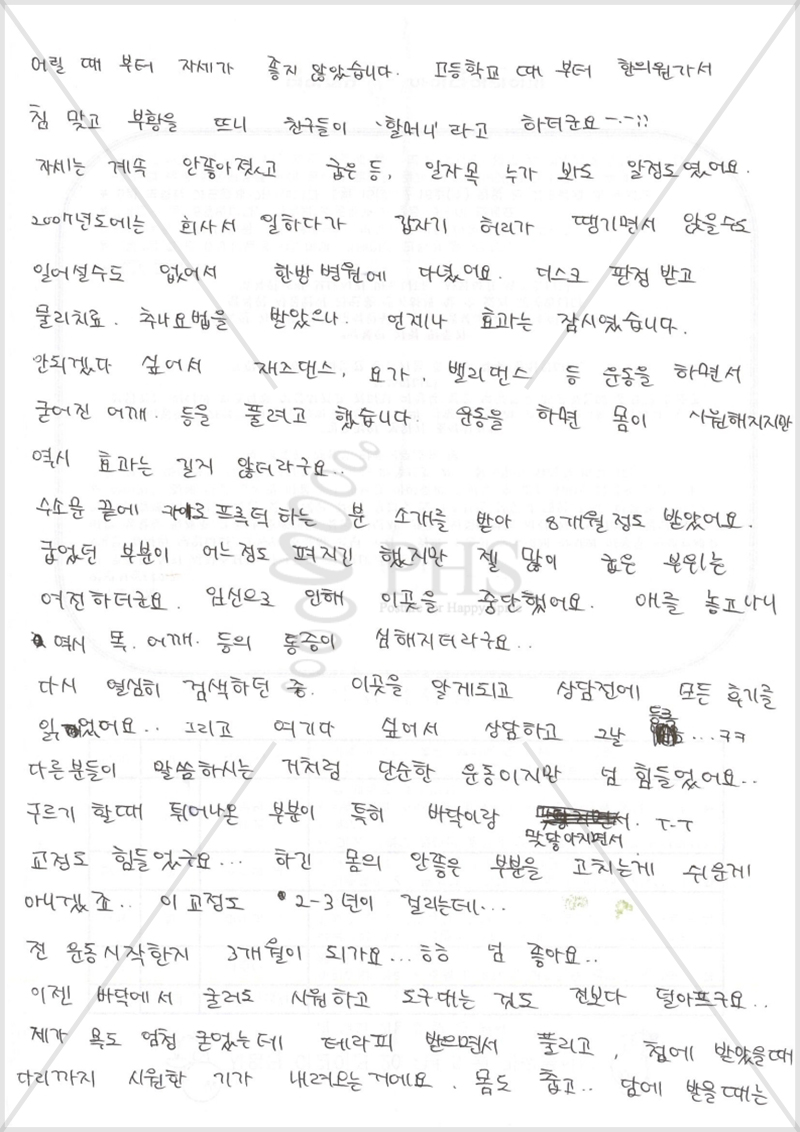 어릴 때 부터 자세가 좋지 않았습니다. 고등학교 때 부터 한의원가서
침 맞고 부황을 뜨니 친구들이 '할머니'라고 하더군요 -.-;;
자세는 계속 안좋아졌고 굽은 등, 일자목 누가 봐도 알정도였어요.
2007년도에는 회사서 일하다가 갑자기 허리가 땡기면서 앉을수도
일어설수도 없어서 한방병원에 다녔어요. 디스크 판정 받고
물리치료. 추나요법을 받았으나. 언제나 효과는 잠시였습니다.
안되겠다 싶어서 재즈댄스, 요가, 밸리댄스 등 운동을 하면서
굳어진 어깨. 등을 풀려고 했습니다. 운동을 하면 몸이 시원해지지만
역시 효과는 길지 않더라구요..
수소문 끝에 카이로프록틱 하는 분 소개를 받아 8개월정도 받았어요.
굽었던 부분이 어느정도 펴지긴 했지만 젤 많이 굽은 부위는
여전하더군요. 임신으로 인해 이곳을 중단했어요. 애를 놓고나니
역시 목. 어깨. 등의 통증이 심해지더라구요..
PHS
Posture for Happy Spine
다시 열심히 검색하던 중. 이곳을 알게되고 상담전에 모든 후기를
읽었어요.. 그리고 여기다 싶어서 상담하고 그날 등록...ㅋㅋ
다른분들이 말씀하시는 거처럼 단순한 운동이지만 넘 힘들었어요..
구르기 할때 튀어나온 부분이 특히 바닥이랑 맞닿아지면서. ㅜ-ㅜ
교정도 힘들었구요... 하긴 몸의 안좋은 부분을 고치는게 쉬운게
아니겠죠.. 이 교정도 2-3년이 걸리는데...
전 운동시작한지 3개월이 되가요...ㅎㅎ 넘 좋아요..
이젠 바닥에서 굴러도 시원하고 도구대는 것도 전보다 덜아프구요..
제가 목도 엄청 굳었는데 테라피 받으면서 풀리고, 첨에 받았을때
다리까지 시원한 기가 내려오는거에요. 몸도 춥고.. 담에 받을때는